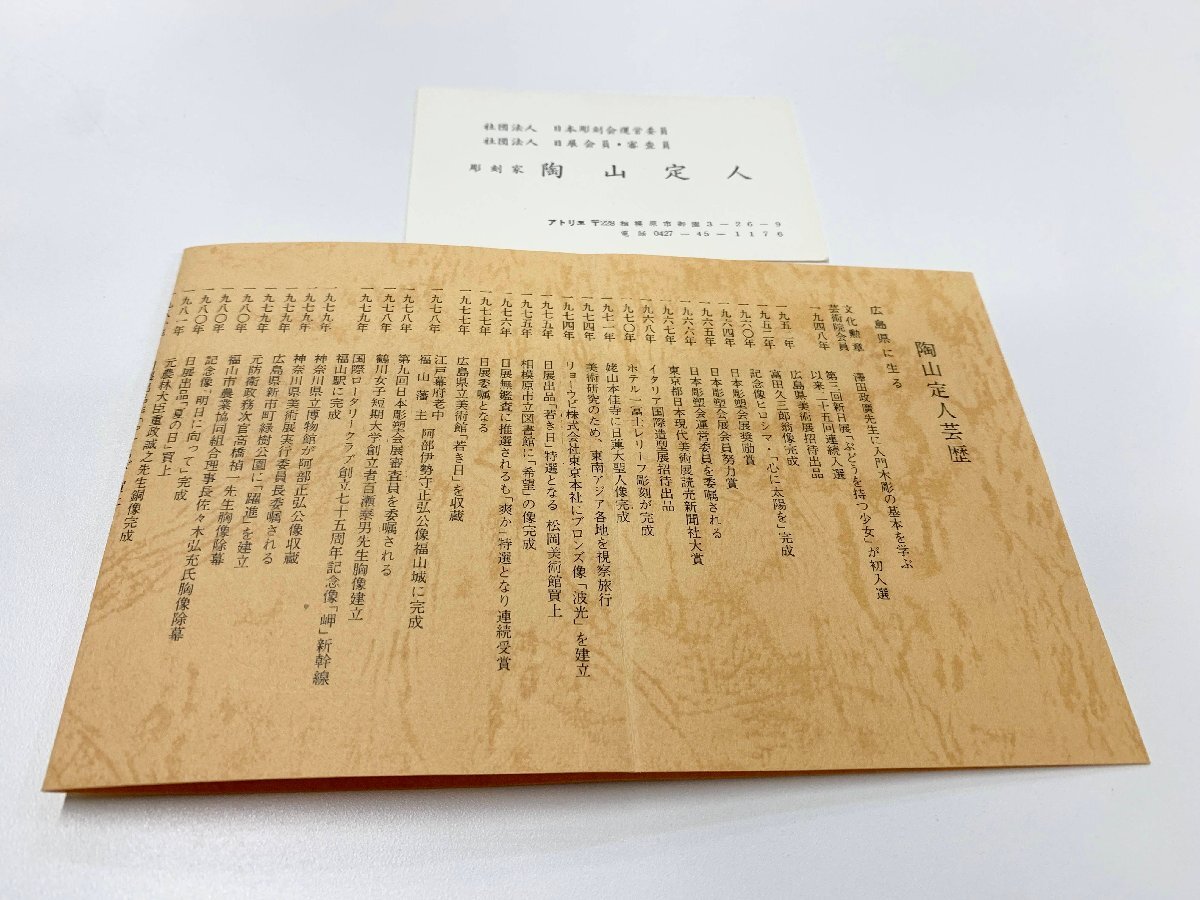 社団法人 日本彫刻会運営委員
社団法人 日展会員・審査員
彫刻家 陶山定人
アトリエ 〒228 相模原市御園3-26-9
電話 0427-45-1176
陶山定人芸歴
広島県に生る
文化勲章
芸術院会員 澤田政廣先生に入門木彫の基本を学ぶ
一九四八年 第三回新日展「ぶどうを持つ少女」が初入選
以来二十五回連続入選
広島県美術展招待出品
一九五一年 富田久三郎翁像完成
一九五二年 記念像ヒロシマ・「心に太陽を」完成
一九六〇年 日本彫塑会展奨励賞
一九六四年 日本彫塑会展会員努力賞
一九六五年 日本彫塑会運営委員を委嘱される
一九六六年 東京都日本現代美術展読売新聞社大賞
一九六七年 イタリア国際造型展招待出品
一九六八年 ホテル一富士レリーフ彫刻が完成
一九七〇年 姥山本佳寺に日蓮大聖人像完成
一九七一年 美術研究のため、東南アジア各地を視察旅行
一九七四年 リョービ株式会社東京本社にブロンズ像「波光」を建立
一九七四年 日展出品「若き日」特選となる 松岡美術館買上
一九七五年 相模原市立図書館に「希望」の像完成
一九七五年 日展無鑑査に推選されるも「爽か」特選となり連続受賞
一九七六年 日展委嘱となる
一九七七年 広島県立美術館「若き日」を収蔵
一九七七年 江戸幕府老中
福山藩主 阿部伊勢守正弘公像福山城に完成
一九七八年 第九回日本彫塑会展審査員を委嘱される
一九七八年 鶴川女子短期大学創立者百瀬泰男先生胸像建立
一九七八年 国際ロータリークラブ創立七十五周年記念像「岬」新幹線
一九七九年 福山駅に完成
一九七九年 神奈川県立博物館が阿部正弘公像収蔵
一九七九年 神奈川県美術展実行委員長委嘱される
一九七九年 広島県新市町緑樹公園に「躍進」を建立
一九七九年 元防衛政務次官高橋禎一先生胸像除幕
一九八〇年 福山市農業協同組合理事長佐々木弘充氏胸像除幕
一九八〇年 記念像「明日に向って」完成
一九八〇年 日展出品「夏の日」買上
一九八一年 元農林大臣重政誠之先生銅像完成